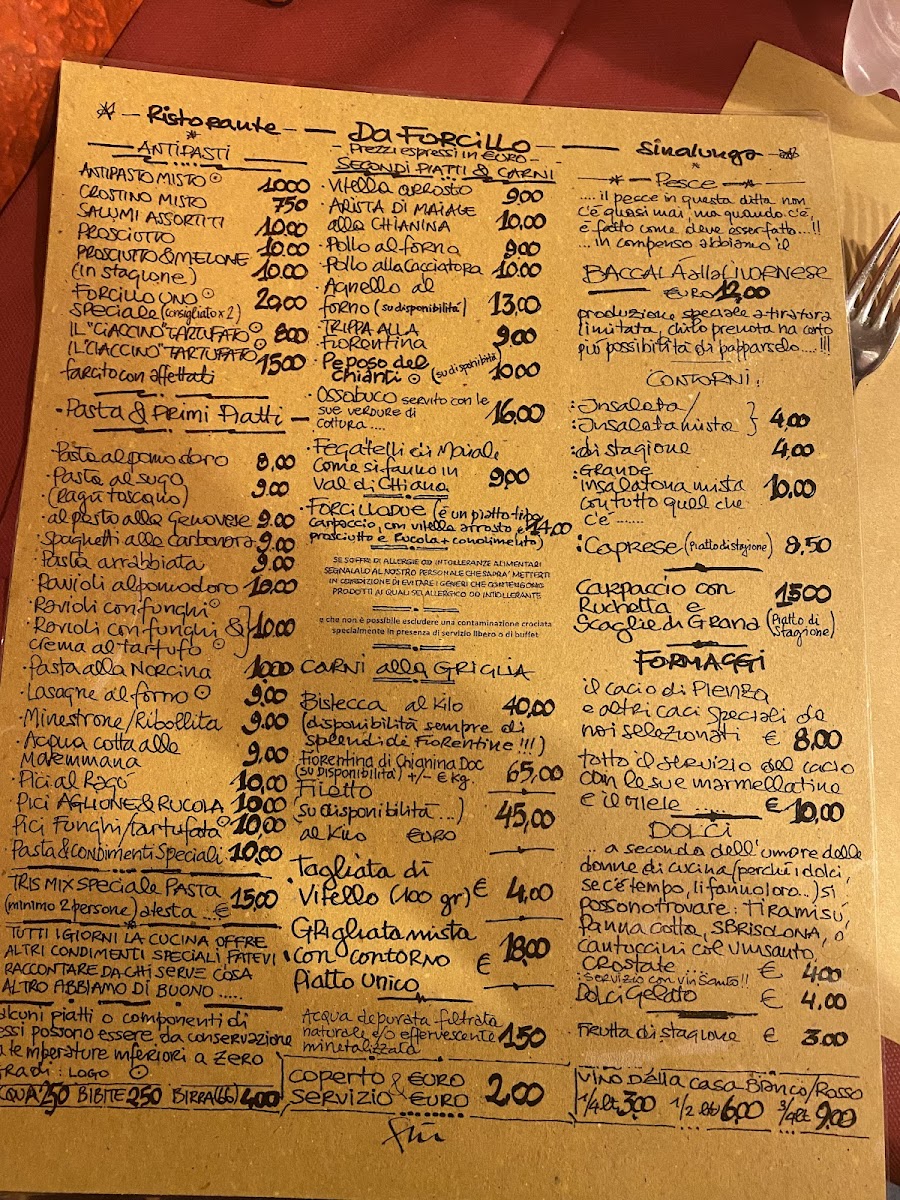 Ristorante
Da FORCILLO
Sinalunga
ANTIPASTI
ANTIPASTO MISTO 10.00
CROSTINO MISTO 7.50
SALUMI ASSORTITI 10.00
PROSCIUTTO 10.00
PROSCIUTTO & MELONE
(in stagione) 10.00
FORCILLO UNO
SPECIALE (consigliato x 2) 20,00
IL "CIACCINO" TARTUFATO 8.00
IL "CIACCINO" TARTUFATO
farcito con affettati 15.00
Pasta & Primi Piatti
Pasta al pomodoro 8,00
Pasta al sugo
(ragù toscano) 9.00
al pesto alla Genovese 9.00
Spaghetti alla carbonara 9.00
Pasta arrabbiata 9.00
Ravioli al pomodoro 10,00
Ravioli con funghi
Ravioli con funghi &
crema al tartufo 10.00
Pasta alla Norcina 10.00
Lasagne al forno 9.00
Minestrone/Ribollita 9.00
Acqua cotta alla
Maremmana 9,00
Pici al Ragù 10,00
Pici AGLIONE & RUCOLA 10.00
Pici Funghi/tartufata 10,00
Pasta & Condimenti Speciali 10,00
TRIS MIX SPECIALE PASTA
(minimo 2 persone) a testa ... € 15,00
TUTTI I GIORNI LA CUCINA OFFRE
ALTRI CONDIMENTI SPECIALI FATEVI
RACCONTARE DA CHI SERVE COSA
ALTRO ABBIAMO DI BUONO .....
alcuni piatti o componenti di
essi possono essere da conservazione
a temperature inferiori a zero
gradi: LOGO
CQUA' 2,50 BIBITE 2,50 BIRRA (66) 4,00
Prezzi espressi in €uro
SECONDI PIATTI & CARNI
Vitella arrosto 9,00
ARISTA DI MAIALE
alla CHIANINA 10,00
Pollo al forno 9,00
Pollo alla Cacciatora 10.00
Agnello al
forno (su disponibilità) 13,00
TRIPPA ALLA
Fiorentina 9,00
Peposo del
Chianti (su disponibilità) 10.00
Ossobuco servito con le
sue verdure di
cottura .... 16,00
Fegatelli di Maiale
Come si fanno in
Val di Chiana 9,00
FORCILLO DUE (è un piatto tipo
carpaccio, con vitella arrosto e 14,00
prosciutto e Rucola + condimento)
SE SOFFRI DI ALLERGIE OD INTOLLERANZE ALIMENTARI
SEGNALALO AL NOSTRO PERSONALE CHE SAPRA' METTERTI
IN CONDIZIONE DI EVITARE I GENERI CHE CONTENGONO
PRODOTTI AI QUALI SEI ALLERGICO OD INTOLLERANTE
e che non è possibile escludere una contaminazione crociata
specialmente in presenza di servizio libero o di buffet
CARNI alla GRIGLIA
Bistecca al Kilo 40,00
(disponibilità sempre di
splendide Fiorentine !!!)
Fiorentina di Chianina Doc
(SU DISPONIBILITÀ) +/- € kg. 65,00
Filetto
(su disponibilità ...) 45,00
al Kilo €URO
Tagliata di
Vitello (100 gr) € 4,00
GRigliata mista
con contorno € 18.00
Piatto Unico
Acqua depurata filtrata
naturale e/o effervescente 1.50
mineralizzata
COPERTO & €URO
SERVIZIO €URO 2,00
Pesce
.... il pesce in questa ditta non
c'è quasi mai, ma quando c'è,
è fatto come deve esser fatto...!!
... in compenso abbiamo il
BACCALÀ alla LIVORNESE
€URO 12,00
produzione speciale a tiratura
limitata, chi lo prenota ha certo
più possibilità di papparselo....!!!
CONTORNI:
Insalata/
Insalata mista } 4,00
di stagione 4,00
GRANDE
insalatona mista 10,00
con tutto quel che
c'è .......
CAPRESE (Piatto di stagione) 8,50
CARPACCIO con
Ruchetta e 15.00
Scaglie di Grana (Piatto di
Stagione)
FORMAGGI
il cacio di Pienza
e altri caci speciali da
noi selezionati € 8,00
tutto il servizio del cacio
con le sue marmellatine
e il miele ...... € 10,00
DOLCI
... a secondo dell'umore delle
donne di cucina (perchè i dolci,
se c'è tempo, li fanno loro...) si
possono trovare: Tiramisù,
Panna cotta, SBRISOLONA, o
cantuccini col vinsanto,
CROSTATE € 4.00
servizio con vin santo!!
Dolci Gelato € 4,00
Frutta di stagione € 3.00
VINO DELLA CASA BIANCO/ROSSO
1/4 lt 3,00 1/2 lt 6,00 3/4 lt 9,00